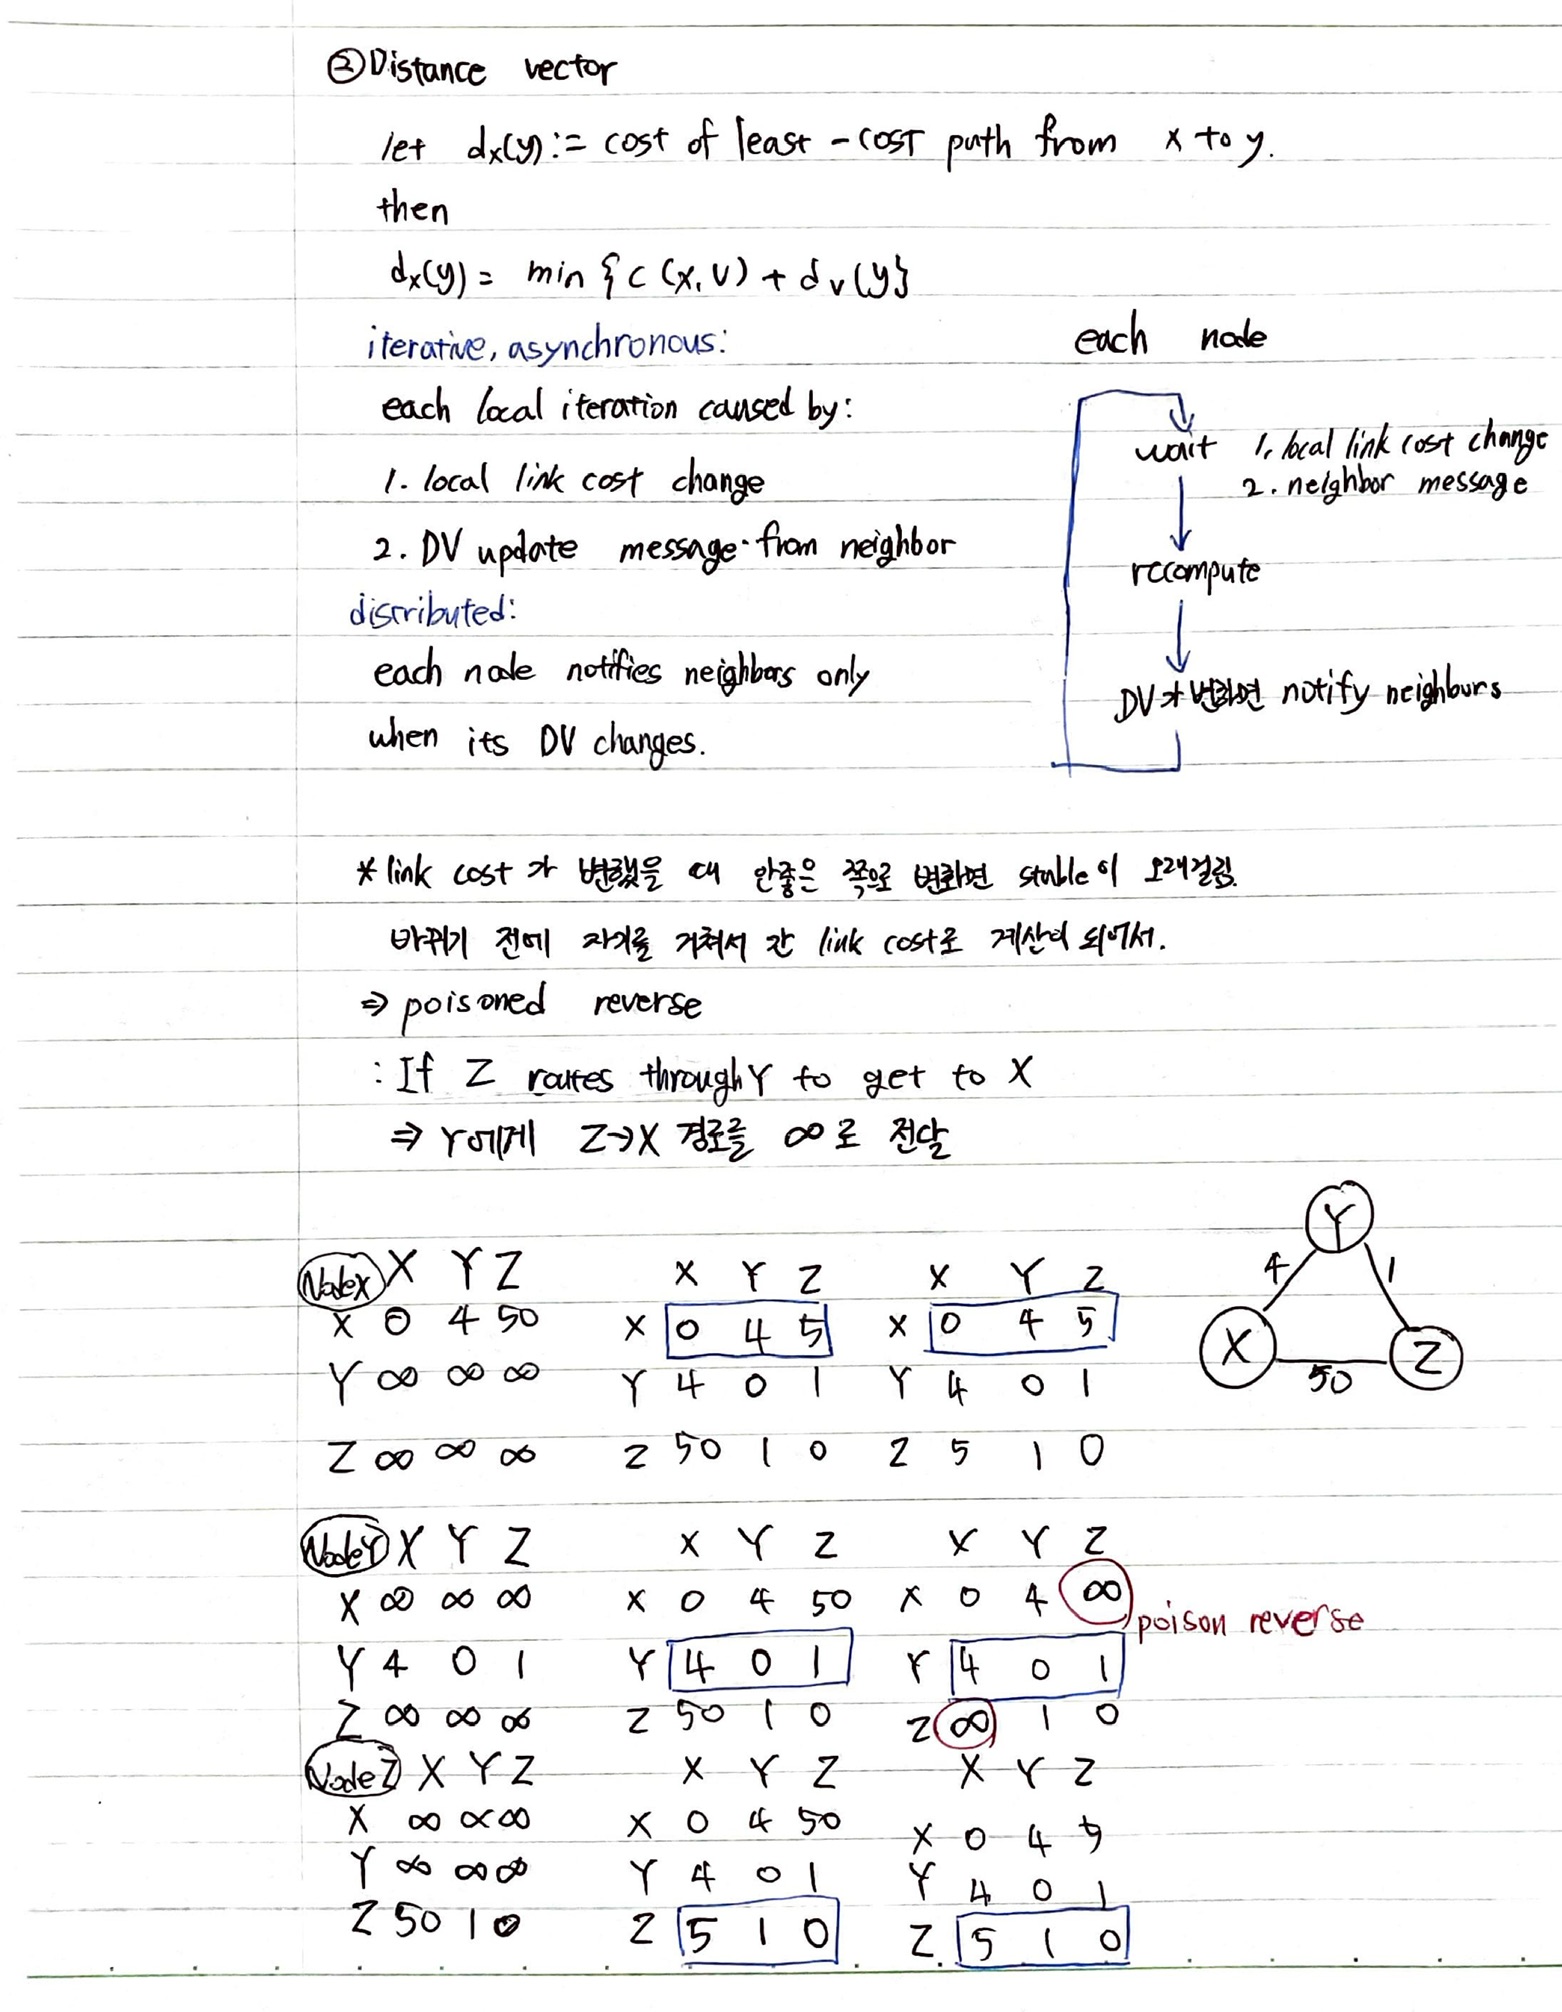 ② Distance vector
let dx(y) := cost of least-cost path from x to y.
then
dx(y) = min {c(x,v) + dv(y)}
iterative, asynchronous:
each local iteration caused by:
1. local link cost change
2. DV update message from neighbor
distributed:
each node notifies neighbors only
when its DV changes.
each node
wait 1. local link cost change
2. neighbor message
recompute
DV가 변하면 notify neighbors
* link cost가 변했을 때 안좋은 쪽으로 변화면 stable이 오래걸림.
바뀌기 전에 자기를 거쳐서 간 link cost로 계산이 되어서.
⇒ poisoned reverse
: If Z routes through Y to get to X
⇒ Y에게 Z→X 경로를 ∞로 전달
Y
4 1
X Z
50
Node X X Y Z X Y Z X Y Z
X 0 4 50 X 0 4 5 X 0 4 5
Y ∞ ∞ ∞ Y 4 0 1 Y 4 0 1
Z ∞ ∞ ∞ Z 50 1 0 Z 5 1 0
Node Y X Y Z X Y Z X Y Z
X ∞ ∞ ∞ X 0 4 50 X 0 4 ∞ poison reverse
Y 4 0 1 Y 4 0 1 Y 4 0 1
Z ∞ ∞ ∞ Z 50 1 0 Z ∞ 1 0
Node Z X Y Z X Y Z X Y Z
X ∞ ∞ ∞ X 0 4 50 X 0 4 5
Y ∞ ∞ ∞ Y 4 0 1 Y 4 0 1
Z 50 1 0 Z 5 1 0 Z 5 1 0